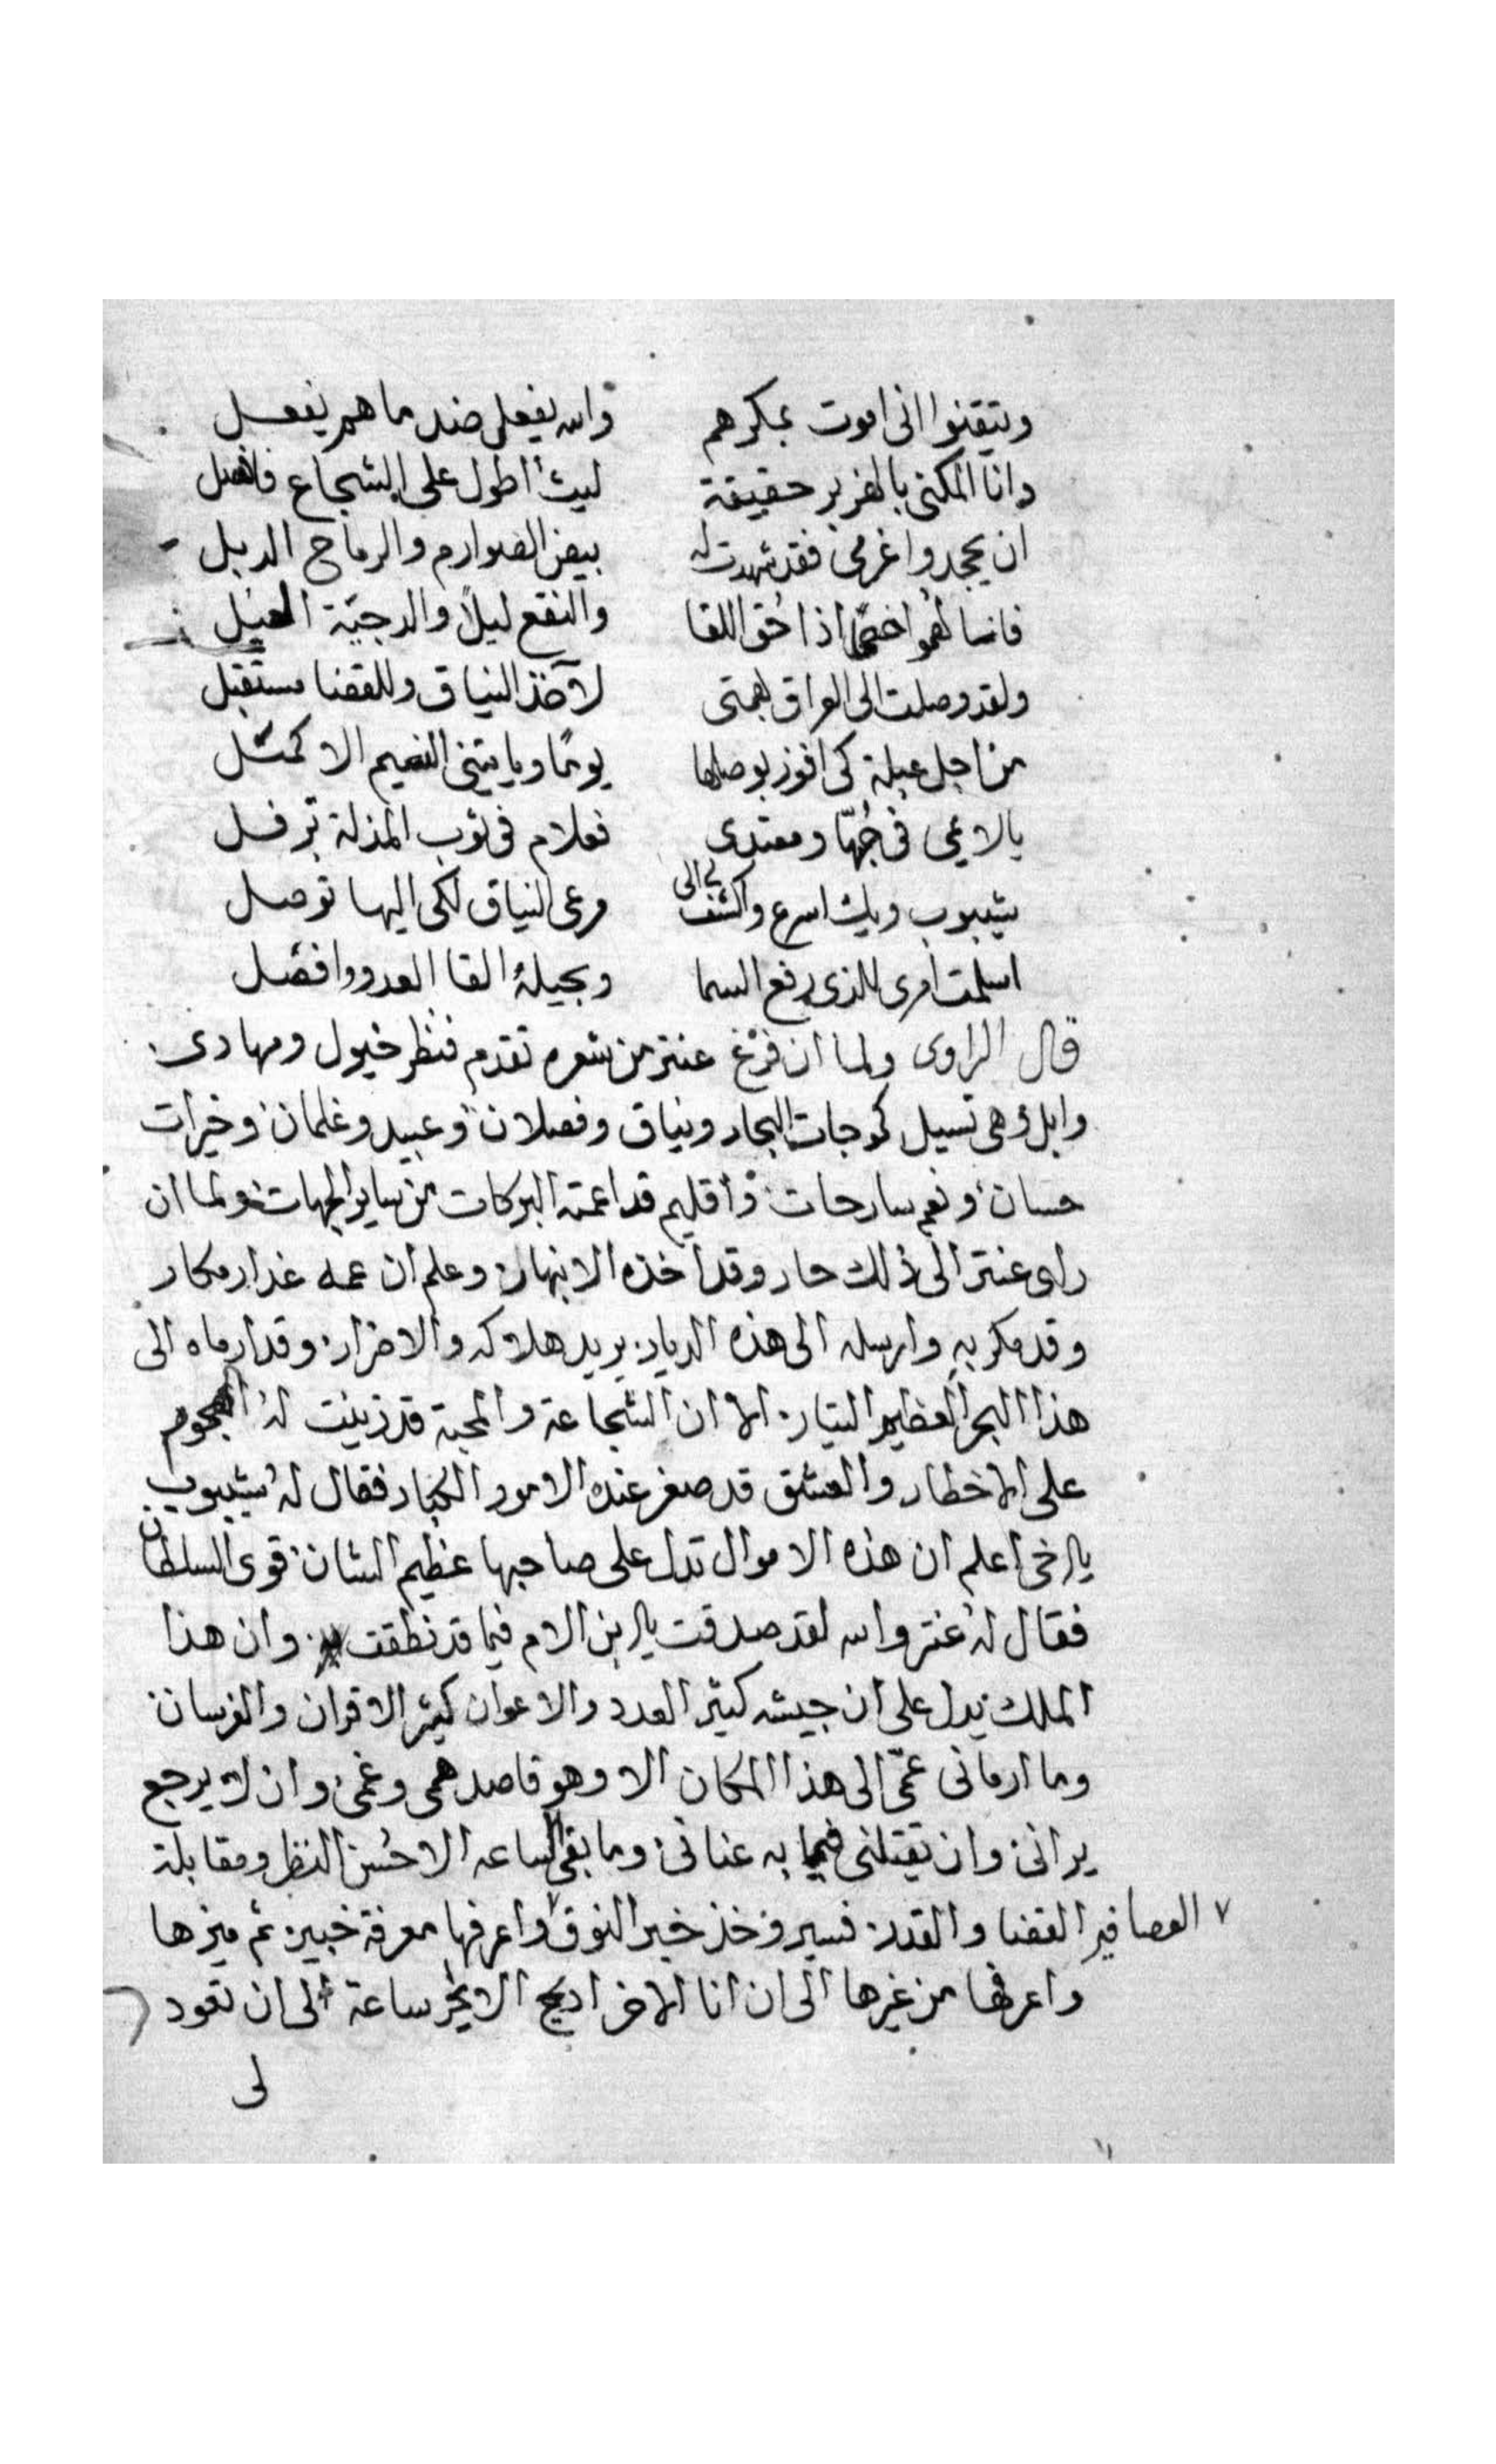 وتيقنوا انى اموت بمكرهم والله يفعل ضد ما هم يفعل
وانا المكنى بالهزبر حقيقة ليث اطول على الشجاع
ان يجحدوا عزمى فقد شهدت له بيض الصوارم والرماح الدبل
اذا حُق اللقا والنقع ليلاً والدجيّة
ولقد وصلت الى العراق بهمتى لآخذ النياق وللقضا مستقبل
من اجل عبلة كى افوز بوصلها يومًا وياتينى النعيم الاكمل
يالايمى فى حُبّها ومعتدى فعلام فى ثوب المذلة ترفل
شيبوب ويك اسرع واكشف لى الى مرعى النياق لكى اليها توصل
اسلمت امرى للذى رفع السما وبحيلة القا العدو وافضل
قال الراوى ولما ان فرغ عنتر من شعره تقدم فنظر خيول ومهادى
وابل وهى تسيل كموجات البحار ونياق وفصلان وعبيد وغلمان وخيرات
حسان ونعم سارحات واقليم قد اعمته البركات من ساير الجهات ولما ان
راى عنتر الى ذلك حار وقد اخذه الانبهار وعلم ان عمه غدار مكار
وقد مكر به وارسله الى هذه الديار يريد هلاكه والاضرار وقد ارماه الى
هذا البحر العظيم التيار الا ان الشجاعة والمحبة قد زينت له الهجوم
على الاخطار والعشق قد صغر عنده الامور الكبار فقال له شيبوب
يالخى اعلم ان هذه الاموال تدل على صاحبها عظيم الشان قوى السلطان
فقال له عنتر والله لقد صدقت يالبن الام فيما قد نطقت وان هذا
الملك يدل على ان جيشه كثير العدد والاعوان كثير الاقران والفرسان
وما ارمانى عمّى الى هذا المكان الا وهو قاصد همى وغمى وان لا يرجع
يرانى وان تقتلنى فيما به عنانى وما بقى الساعه الا حُسن النظر ومقابلة
القضا والقدر فسير وخذ خبر النوق ٧ العصافير واعرفها معرفة خبير ثم ميزها
واعرفها من غيرها الى ان انا الاخر اريح الابجر ساعة الى ان تعود
لى